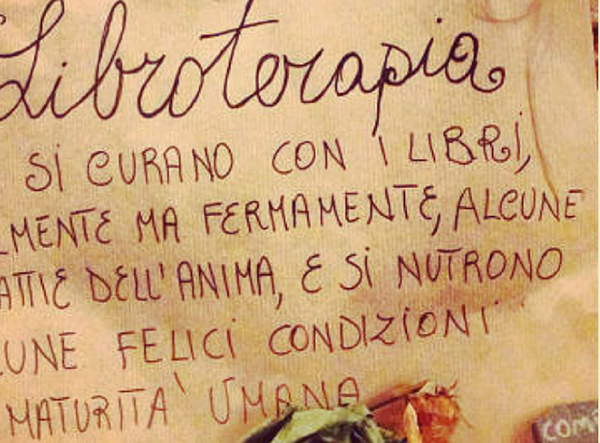 Libroterapia
SI CURANO CON I LIBRI,
LMENTE MA FERMAMENTE, ALCUNE
ATTIE DELL'ANIMA, E SI NUTRONO
UNE FELICI CONDIZIONI
MATURITA' UMANA
COM